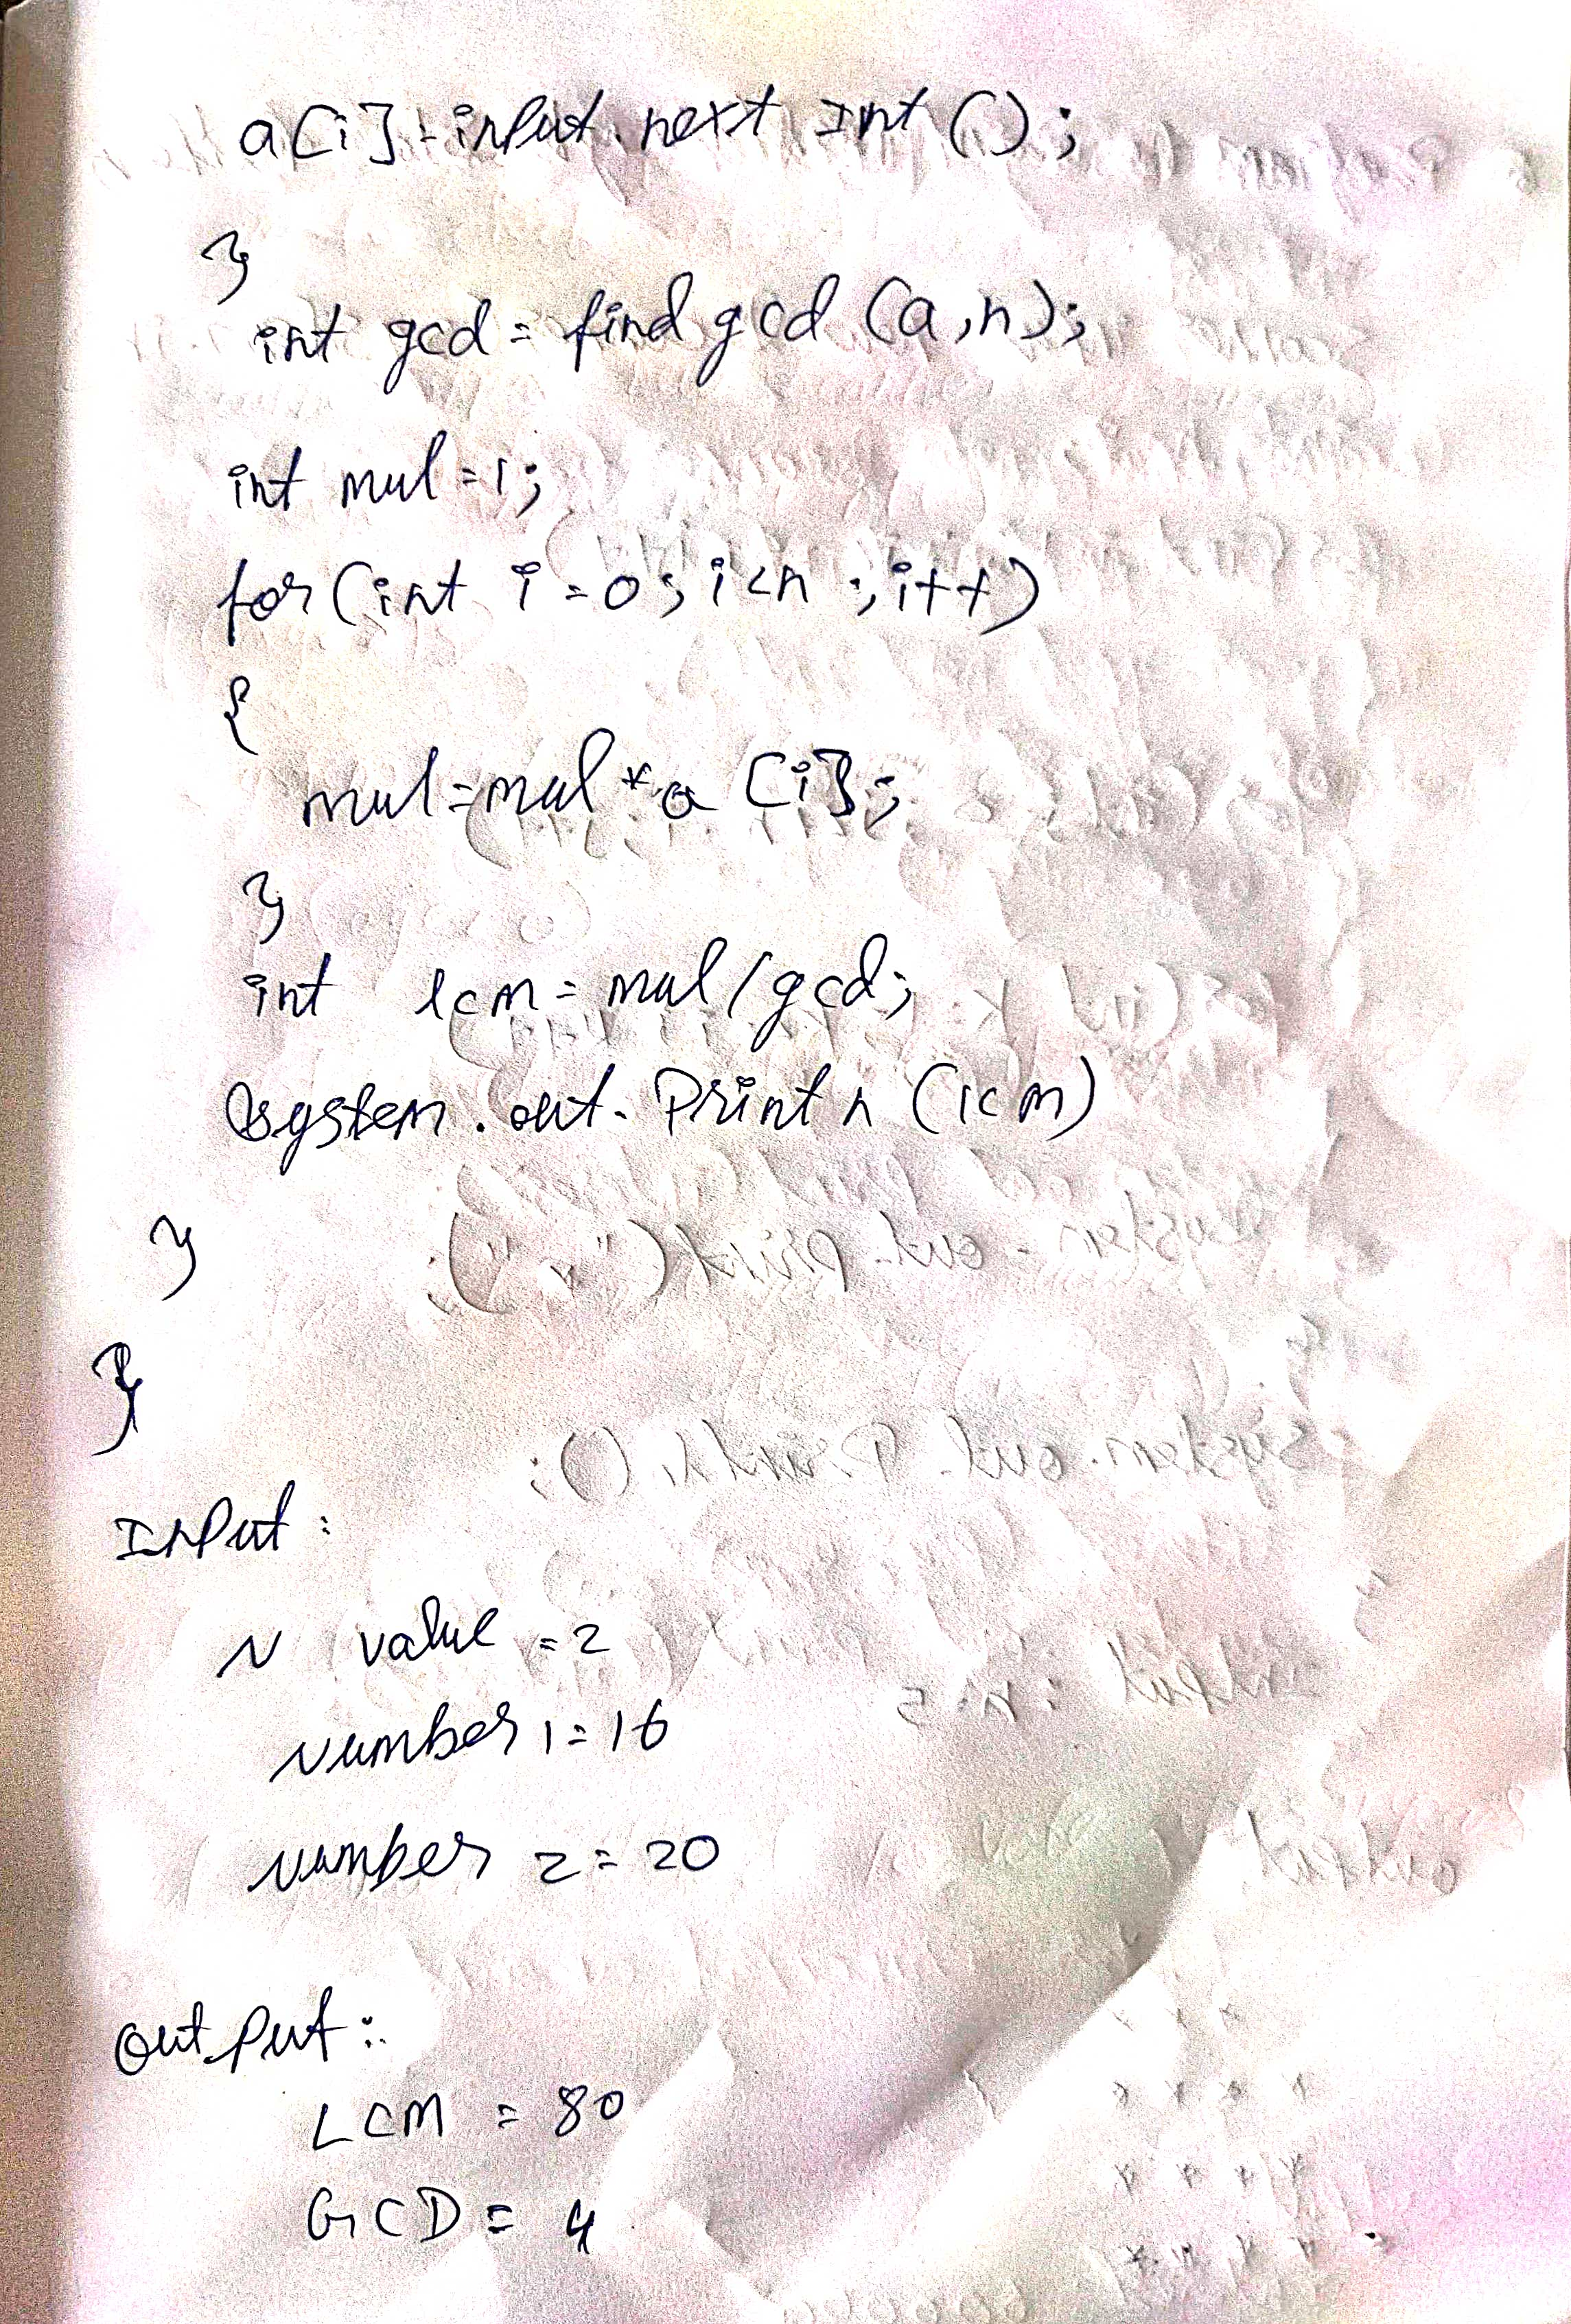 a[i] = input.next Int ();
}
int gcd = find gcd (a,n);
int mul=1;
for(int i=0; i<n ;i++)
{
mul=mul*a [i];
}
int lcm = mul/gcd;
System.out. Print n (lcm)
}
}
Input:
N value = 2
Number 1 = 16
Number 2 = 20
Output:
LCM = 80
GCD = 4